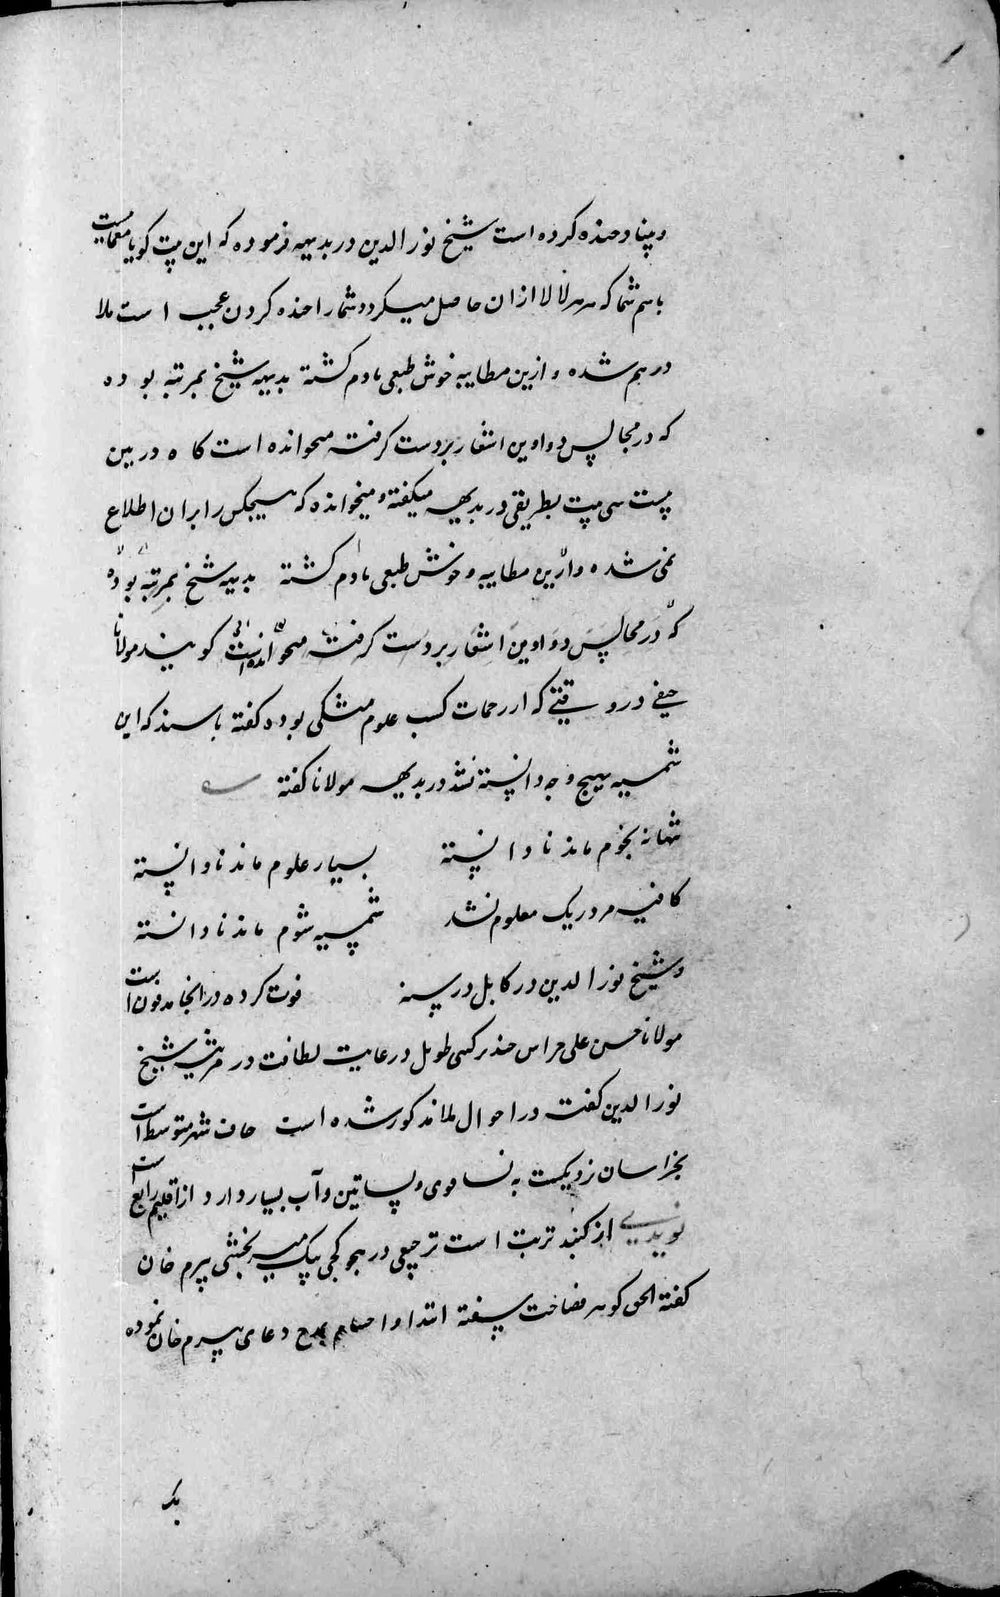 و بنیاد خنده کرده است شیخ نورالدین در بدیهه فرموده که این بیت گویا معماییست
باسم شما که هرهر لالا ازان حاصل میگردد شما را خنده کردن عجب است ملا
درهم شده و ازین مطایبه خوش طبعی نادم گشته بدیهه شیخ بمرتبه بوده
که در مجالس دواوین اشعار بردست گرفته میخوانده است کاه در بین
بیست سی بیت بطریقی در بدیهه میگفته و میخوانده که هیچکس را بران اطلاع
نمی شده و ازین مطایبه و خوش طبعی نادم گشته بدیهه شیخ بمرتبه بوده
که در مجالس دواوین اشعار بردست گرفته میخوانده است گویند مولانا
در وقتی که از زحمات کسب علوم متشکی بوده گفته باشند که این
شمسیه بهیچ وجه دانسته نشد در بدیهه مولانا گفته
بنجوم ماند نادانسته بسیار علوم ماند نادانسته
کافیه مرد ریک معلوم نشد شمسیه شوم ماند نادانسته
و شیخ نورالدین در کابل در سنه فوت کرده در انجا مدفون است
مولانا حسن علی خراس طویل در غایت لطافت در مرثیه شیخ
نورالدین گفته در احوال ملا مذکور شده است شهر متوسط است
بخراسان نزدیکست به نسا و بساتین و آب بسیار دارد از اقلیم رابع است
نویدی از کنبد تربت است ترجیعی در هجو کجی بیک میر بخشی بیرم خان
گفته الحق گوهر فصاحت سفته ابتدا و اختتام بمدح و دعای بیرم خان نموده
یک